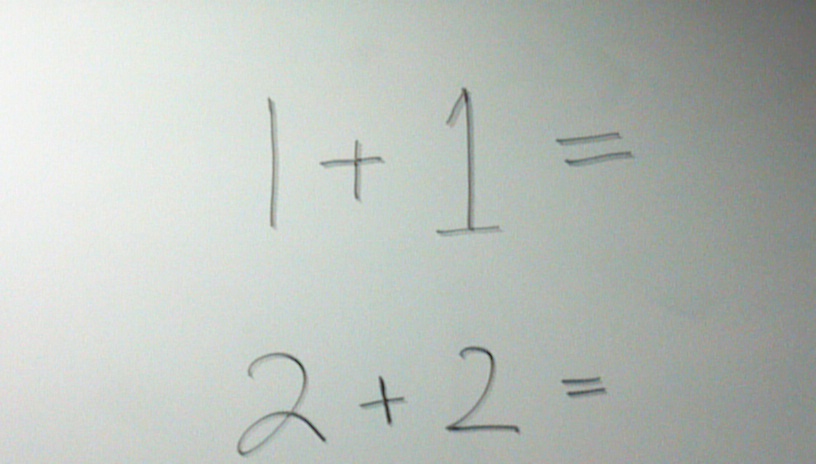 1 + 1 =
2 + 2 =